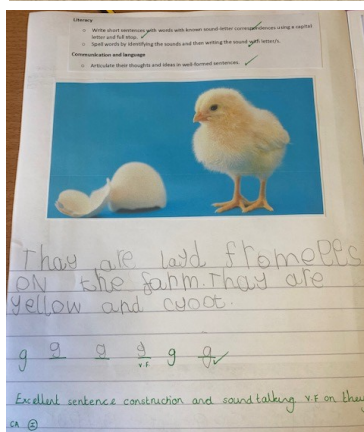 Literacy
Write short sentences with words with known sound-letter correspondences using a capital
letter and full stop.
Spell words by identifying the sounds and then writing the sound with letter/s.
Communication and language
Articulate their thoughts and ideas in well-formed sentences.
Thay are layd from eggs
ON the farm. Thay are
yellow and cyoot.
g g g g g g
V.F
Excellent sentence construction and sound talking V.F on they
CA